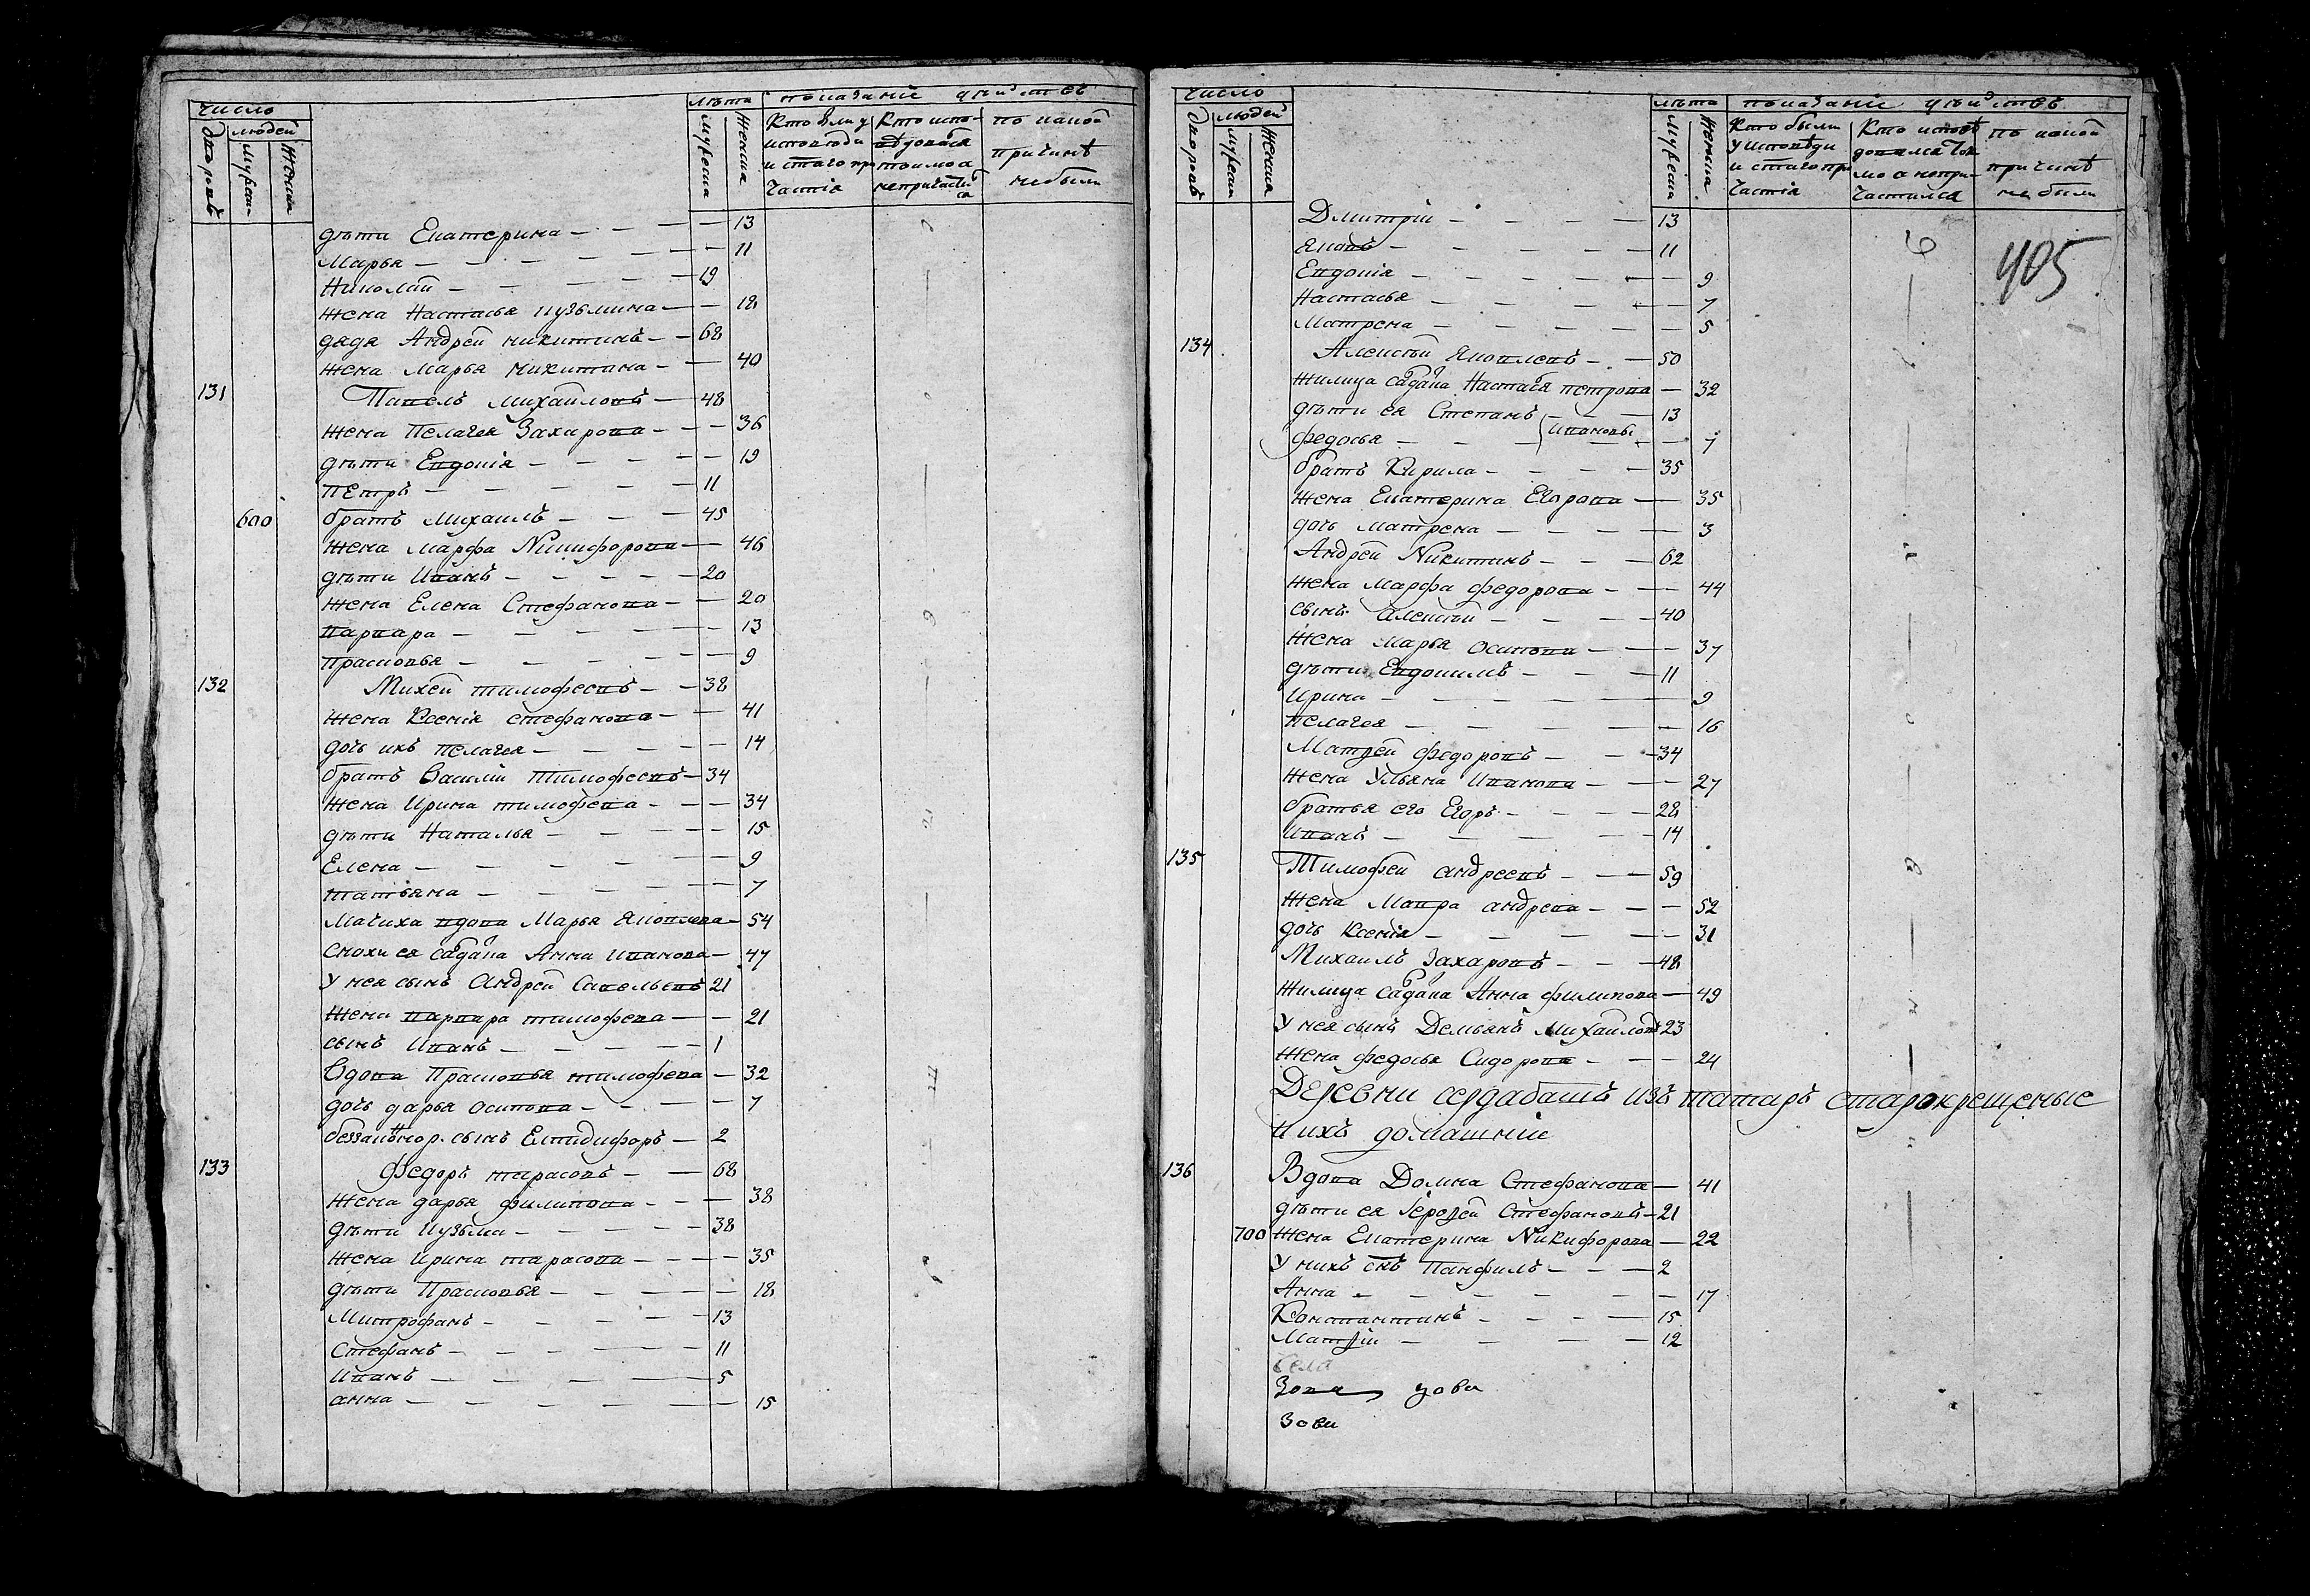 число
лѣта показаніе дѣйствъ
дворовъ
людей
мужеска
женска
мужеска
женска
Кто были у исповѣди и стаго причастія
Кто исповѣдовался токмо а непричастился
по какой причинѣ небыли
дѣти Екатерина – 13
Марья – 11
Николай – 19
жена Настасья кузьмина – 18
дядя Андрей никитинъ – 68
жена Марья никитина – 40
131 Павелъ михайловъ – 48
жена Пелагея Захарова – 36
дѣти Евдокія – 19
Петръ – 11
600 братъ михаилъ – 45
жена марфа Никифорова – 46
дѣти Иванъ – 20
жена Елена Стефанова – 20
варвара – 13
прасковья – 9
132 Михей тимофеевъ – 38
жена Ксенія стефанова – 41
дочь ихъ пелагея – 14
братъ Василій тимофеевъ – 34
жена Ирина тимофева – 34
дѣти Наталья – 15
Елена – 9
татьяна – 7
мачиха вдова Марья яковлева – 54
снохи ея салдака Анна иванова – 47
у нея сынъ Андрей Савельевъ 21
жена варвара тимофева – 21
сынъ Иванъ – 1
Вдова Прасковья тимофева – 32
дочь дарья осипова – 7
беззаконнор. сынъ Елпидифоръ – 2
133 Федоръ тарасовъ – 68
жена дарья филипова – 38
дѣти кузьма – 38
жена ирина тарасова – 35
дѣти Прасковья – 18
Митрофанъ – 13
Стефанъ – 11
иванъ – 5
анна – 15
число
лѣта показаніе дѣйствъ
дворовъ
людей
мужеска
женска
мужеска
женска
Кто были у исповѣди и стаго причастія
Кто исповѣдовался ток мо а непричастился
по какой причинѣ не были
405
Дмитрій – 13
яковъ – 11
Евдокія – 9
Настасья – 7
Матрена – 5
134 Алексѣй яковлевъ – 50
жилица салдака Настасья петрова – 32
дѣти ея Степанъ – 13
ивановы
федосья – 7
братъ Кирила – 35
жена Екатерина Егорова – 35
дочь матрена – 3
Андрей Никитинъ – 62
жена марфа федорова – 44
сынъ алексѣй – 40
жена марья осипова – 37
дѣти Евдокимъ – 11
ирина – 9
пелагея – 16
Матвей федоровъ – 34
жена Ульяна иванова – 27
братья его Егоръ – 28
иванъ – 14
135 Тимофей андреевъ – 59
жена мавра андрева – 52
дочь Ксенія – 31
Михаилъ Захаровъ – 48
жилица салдака Анна филипова – 49
у нея сынъ Демьянъ михайловъ 23
жена федосья Сидорова – 24
Деревни сердабашъ изъ татаръ старокрещеные
и ихъ домашніе
136 Вдова Домна Стефанова – 41
дѣти ея Сергей Стефановъ – 21
700 жена Екатерина Никифорова – 22
у нихъ снъ Панфилъ – 2
Анна – 17
Константинъ – 15
Матвѣй – 12
Села
Зова зова
Зови